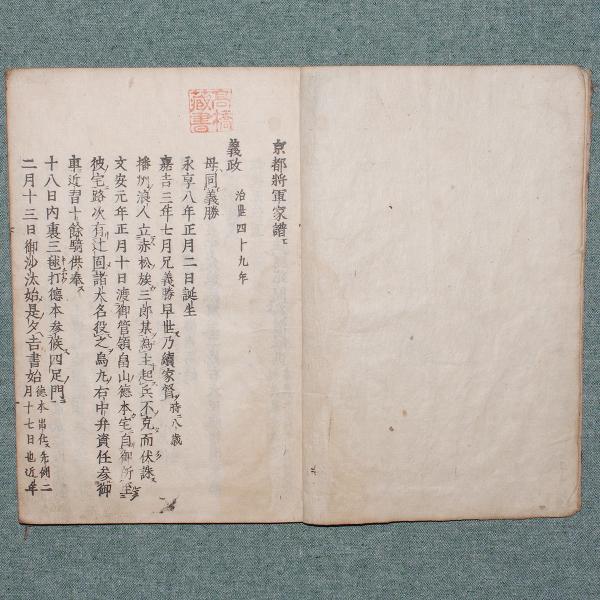 京都將軍家譜
義政 治世四十九年
母同義勝
永享八年正月二日誕生
嘉吉三年七月兄義勝早世乃續家督 時ニ八歳
播州浪人立赤松族三郎某為主起兵不克而伏誅
文安元年正月十日渡御管領畠山德本宅自御所至
彼宅路次有辻固諸大名役之烏丸右中弁資任參御
車近習十餘騎供奉
十八日内裏三毬打德本参候四足門
二月十三日御沙汰始是夕吉書始 德本出仕先例二月十七日也近年
高橋
藏書